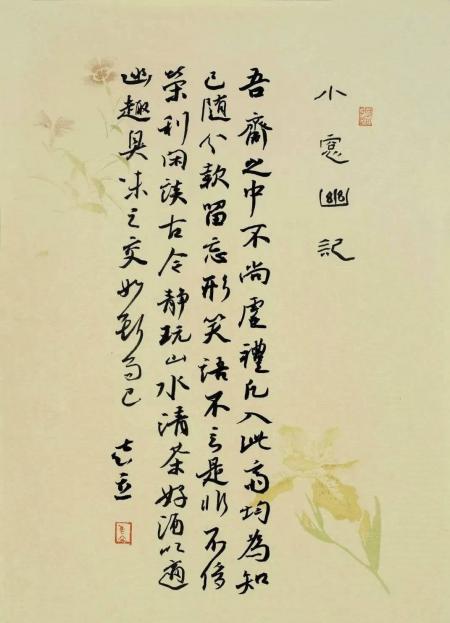 小窻幽記
吾齋之中不尚虛禮凡入此齋均為知
己隨分款留忘形笑語不言是非不侈
榮利閑談古今靜玩山水清茶好酒以適
幽趣臭味之交如斯而已